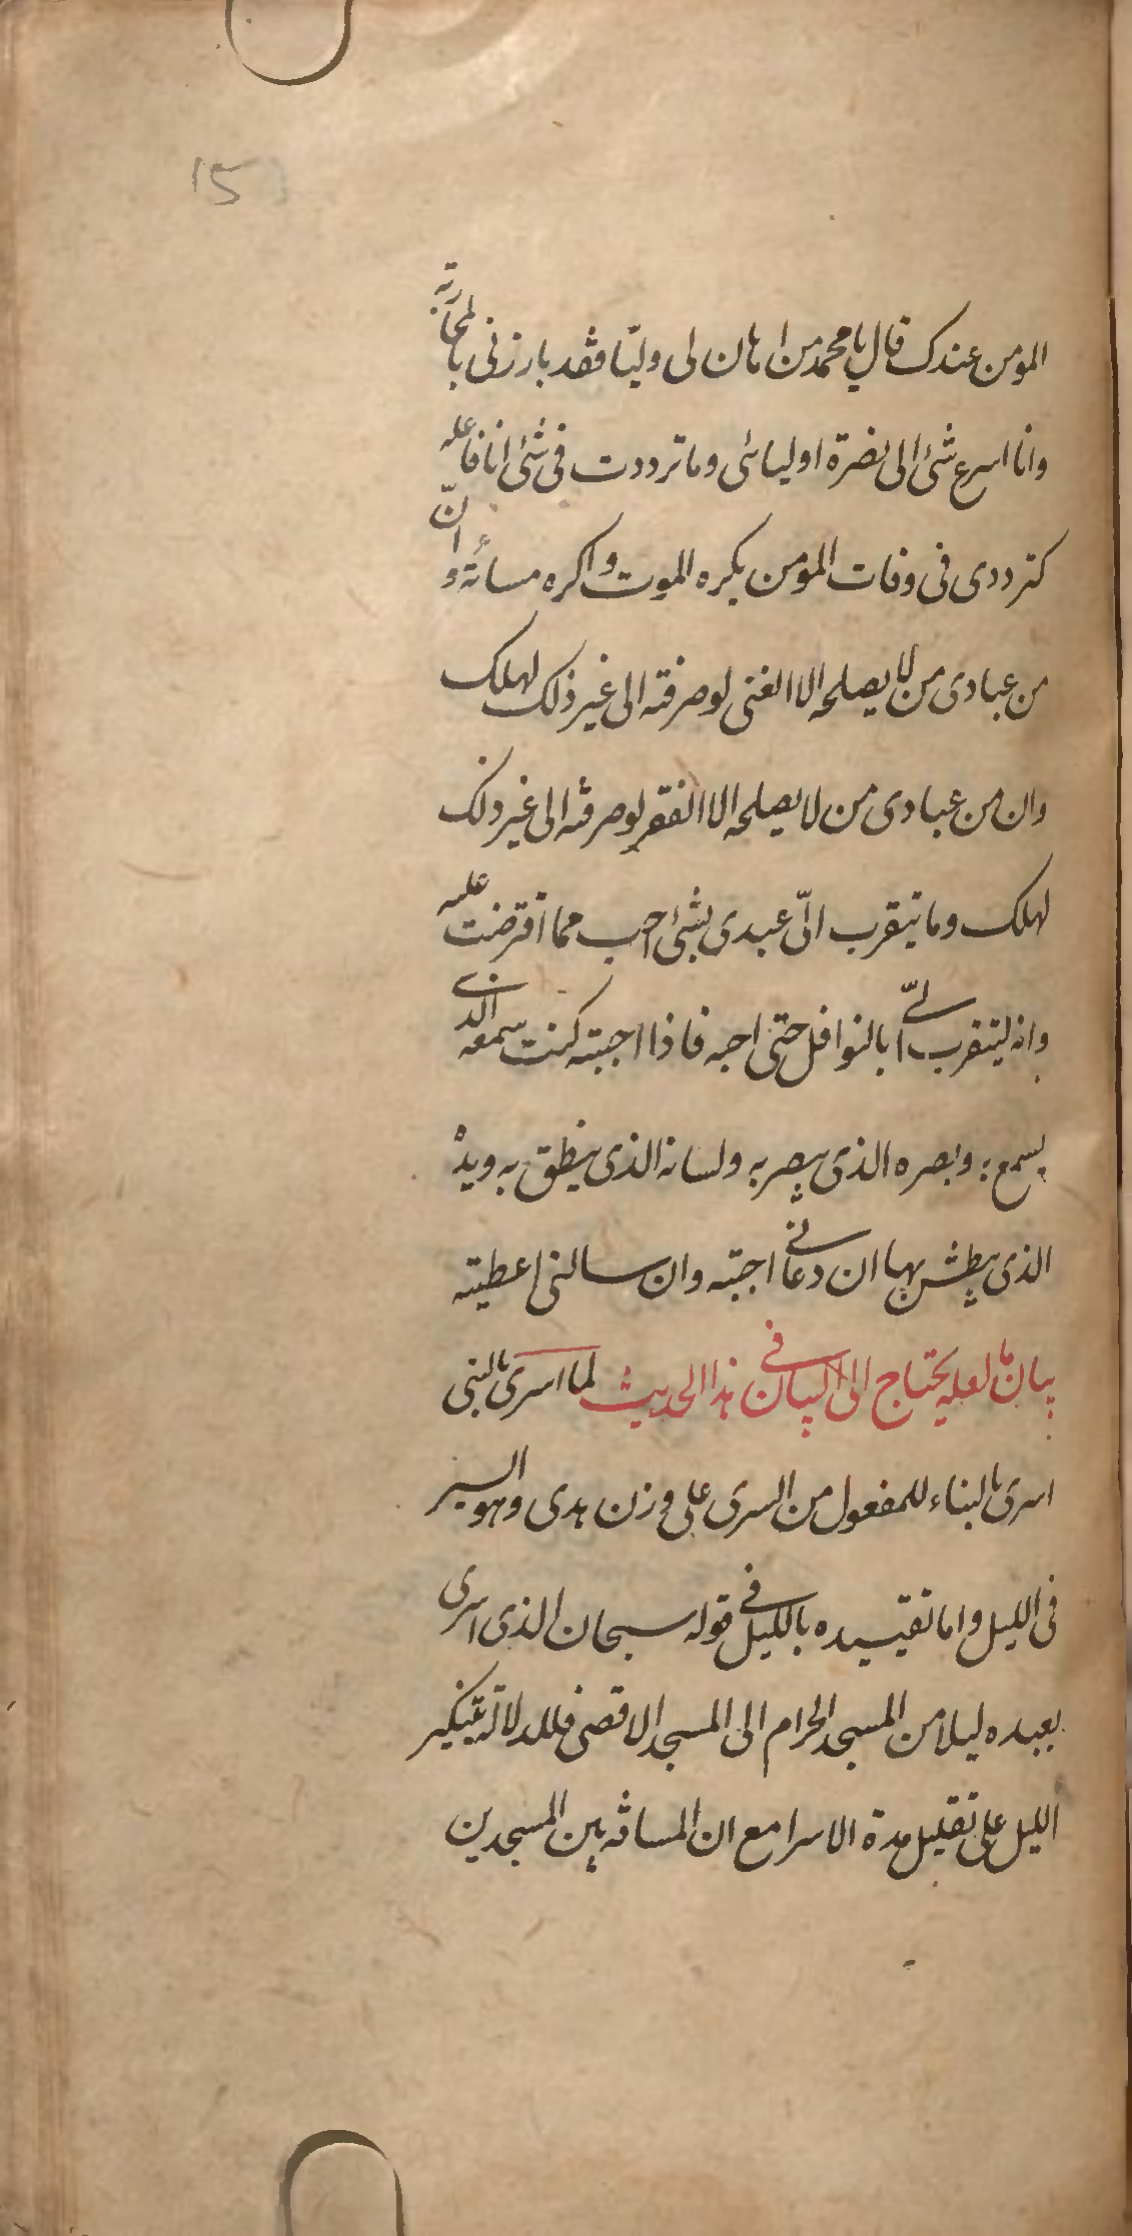 15
المومن عندك قال يا محمد من اهان لى وليّا فقد بارزنى بالمحاربة
وانا اسرع شئ الى نصرة اوليائى وما ترددت فى شئ انا فاعله
كترددى فى وفات المومن يكره الموت واكره مسائته وانّ
من عبادى من لا يصلحه الا الغنى لو صرفته الى غير ذلك لهلك
وان من عبادى من لا يصلحه الا الفقر لو صرفته الى غير ذلك
لهلك وما يتقرب الىّ عبدى بشئ احب مما افترضت عليه
وانه ليتقرب الىّ بالنوافل حتى احبه فاذا احببته كنت سمعه الذى
يسمع به وبصره الذى يبصر به ولسانه الذى ينطق به ويده
الذى يبطش بها ان دعانى اجبته وان سالنى اعطيته
بيان ما لعله يحتاج الى البيان فى هذا الحديث لما اسرى بالنبى
اسرى بالبناء للمفعول من السرى على وزن هدى وهو السير
فى الليل واما تقييده بالليل فى قوله سبحان الذى اسرى
بعبده ليلا من المسجد الحرام الى المسجد الاقصى فللدلالة بتنكير
الليل على تقليل مدة الاسرا مع ان المسافه بين المسجدين